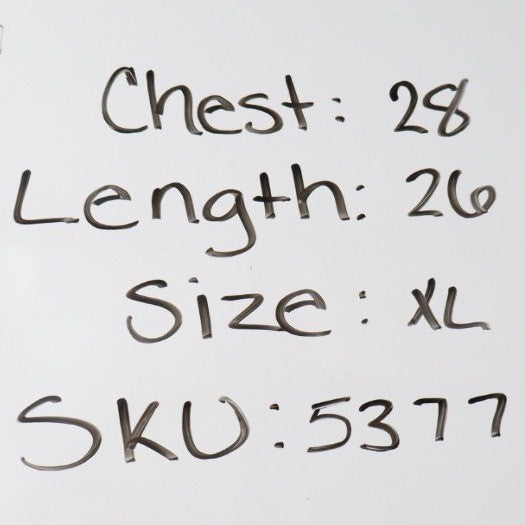 Chest: 28
Length: 26
Size: XL
SKU: 5377